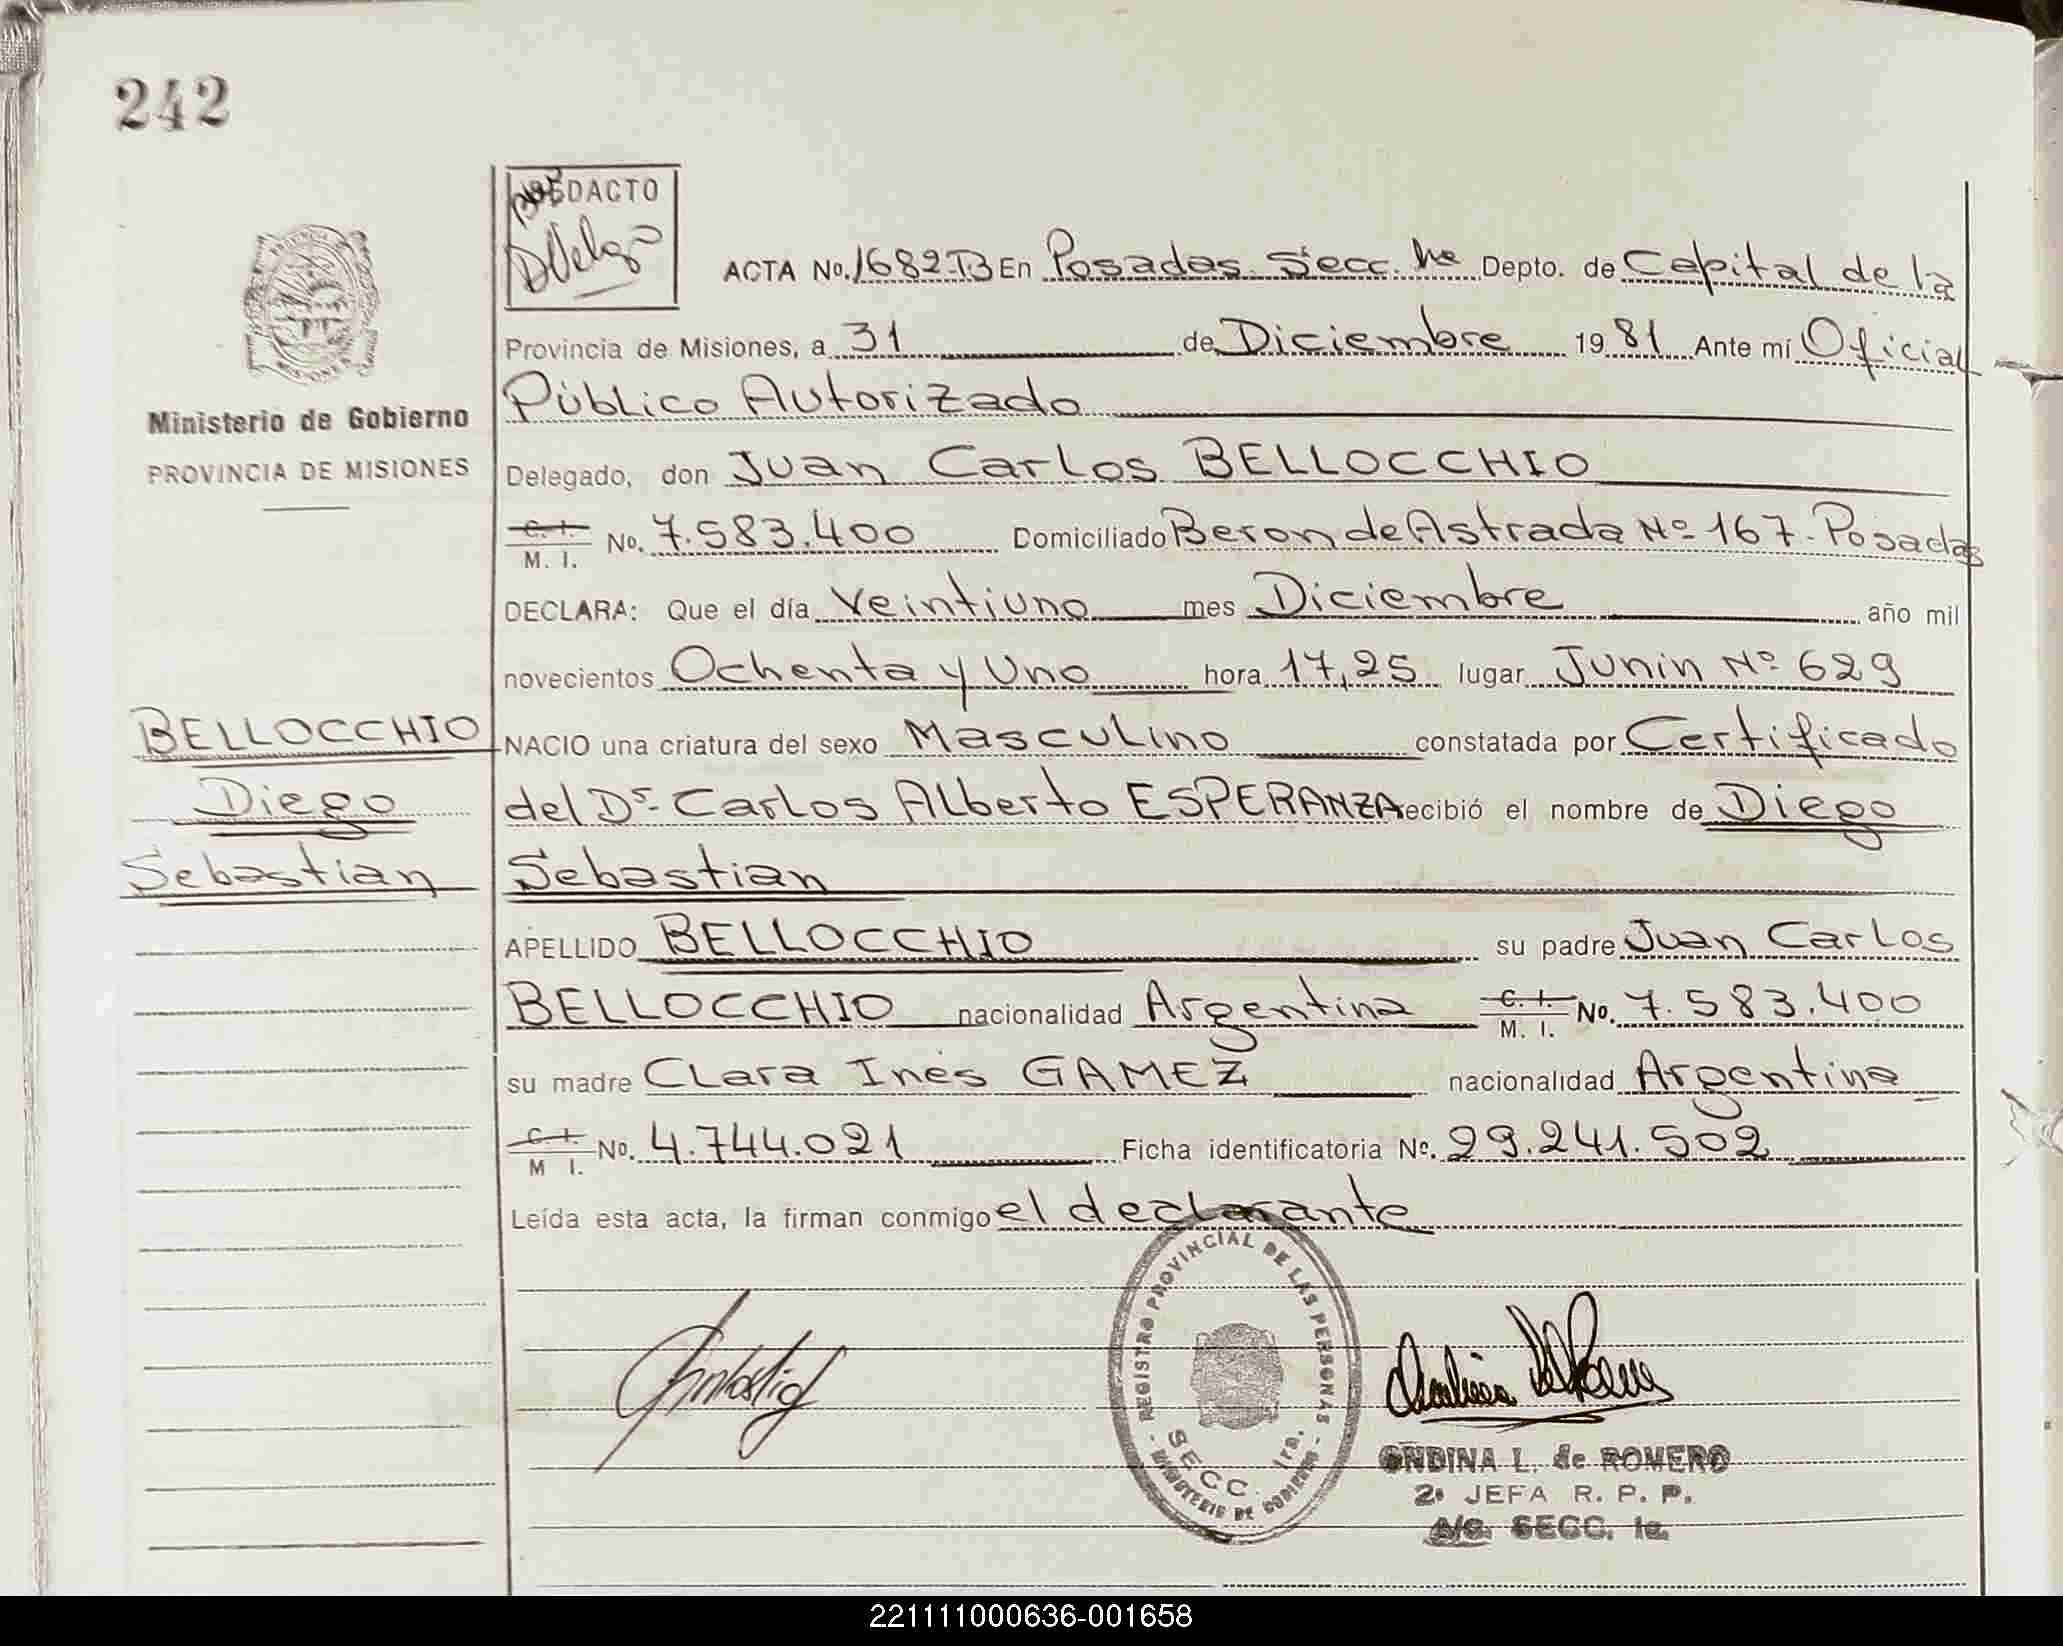 242
REDACTO
Ministerio de Gobierno
PROVINCIA DE MISIONES
BELLOCCHIO
Diego
Sebastian
ACTA No. 1682-B En Posadas Secc. 1ra Depto. de Capital de la
Provincia de Misiones, a 31 de Diciembre 1981 Ante mí Oficial
Público Autorizado
Delegado, don Juan Carlos BELLOCCHIO
C. I. / M. I. No. 7.583.400 Domiciliado Beron de Astrada Nº 167 - Posadas
DECLARA: Que el día Veintiuno mes Diciembre año mil
novecientos Ochenta y Uno hora 17,25 lugar Junin Nº 629
NACIO una criatura del sexo Masculino constatada por Certificado
del Dr. Carlos Alberto ESPERANZA recibió el nombre de Diego
Sebastian
APELLIDO BELLOCCHIO su padre Juan Carlos
BELLOCCHIO nacionalidad Argentina C. I. / M. I. No. 7.583.400
su madre Clara Inés GAMEZ nacionalidad Argentina
C. I. / M. I. No. 4.744.021 Ficha identificatoria No. 29.241.502
Leída esta acta, la firman conmigo el declarante
REGISTRO PROVINCIAL DE LAS PERSONAS
SECC. 1ra.
- MINISTERIO DE GOBIERNO -
ONDINA L. de ROMERO
2ª JEFA R. P. P.
A/C. SECC. 1a.
221111000636-001658